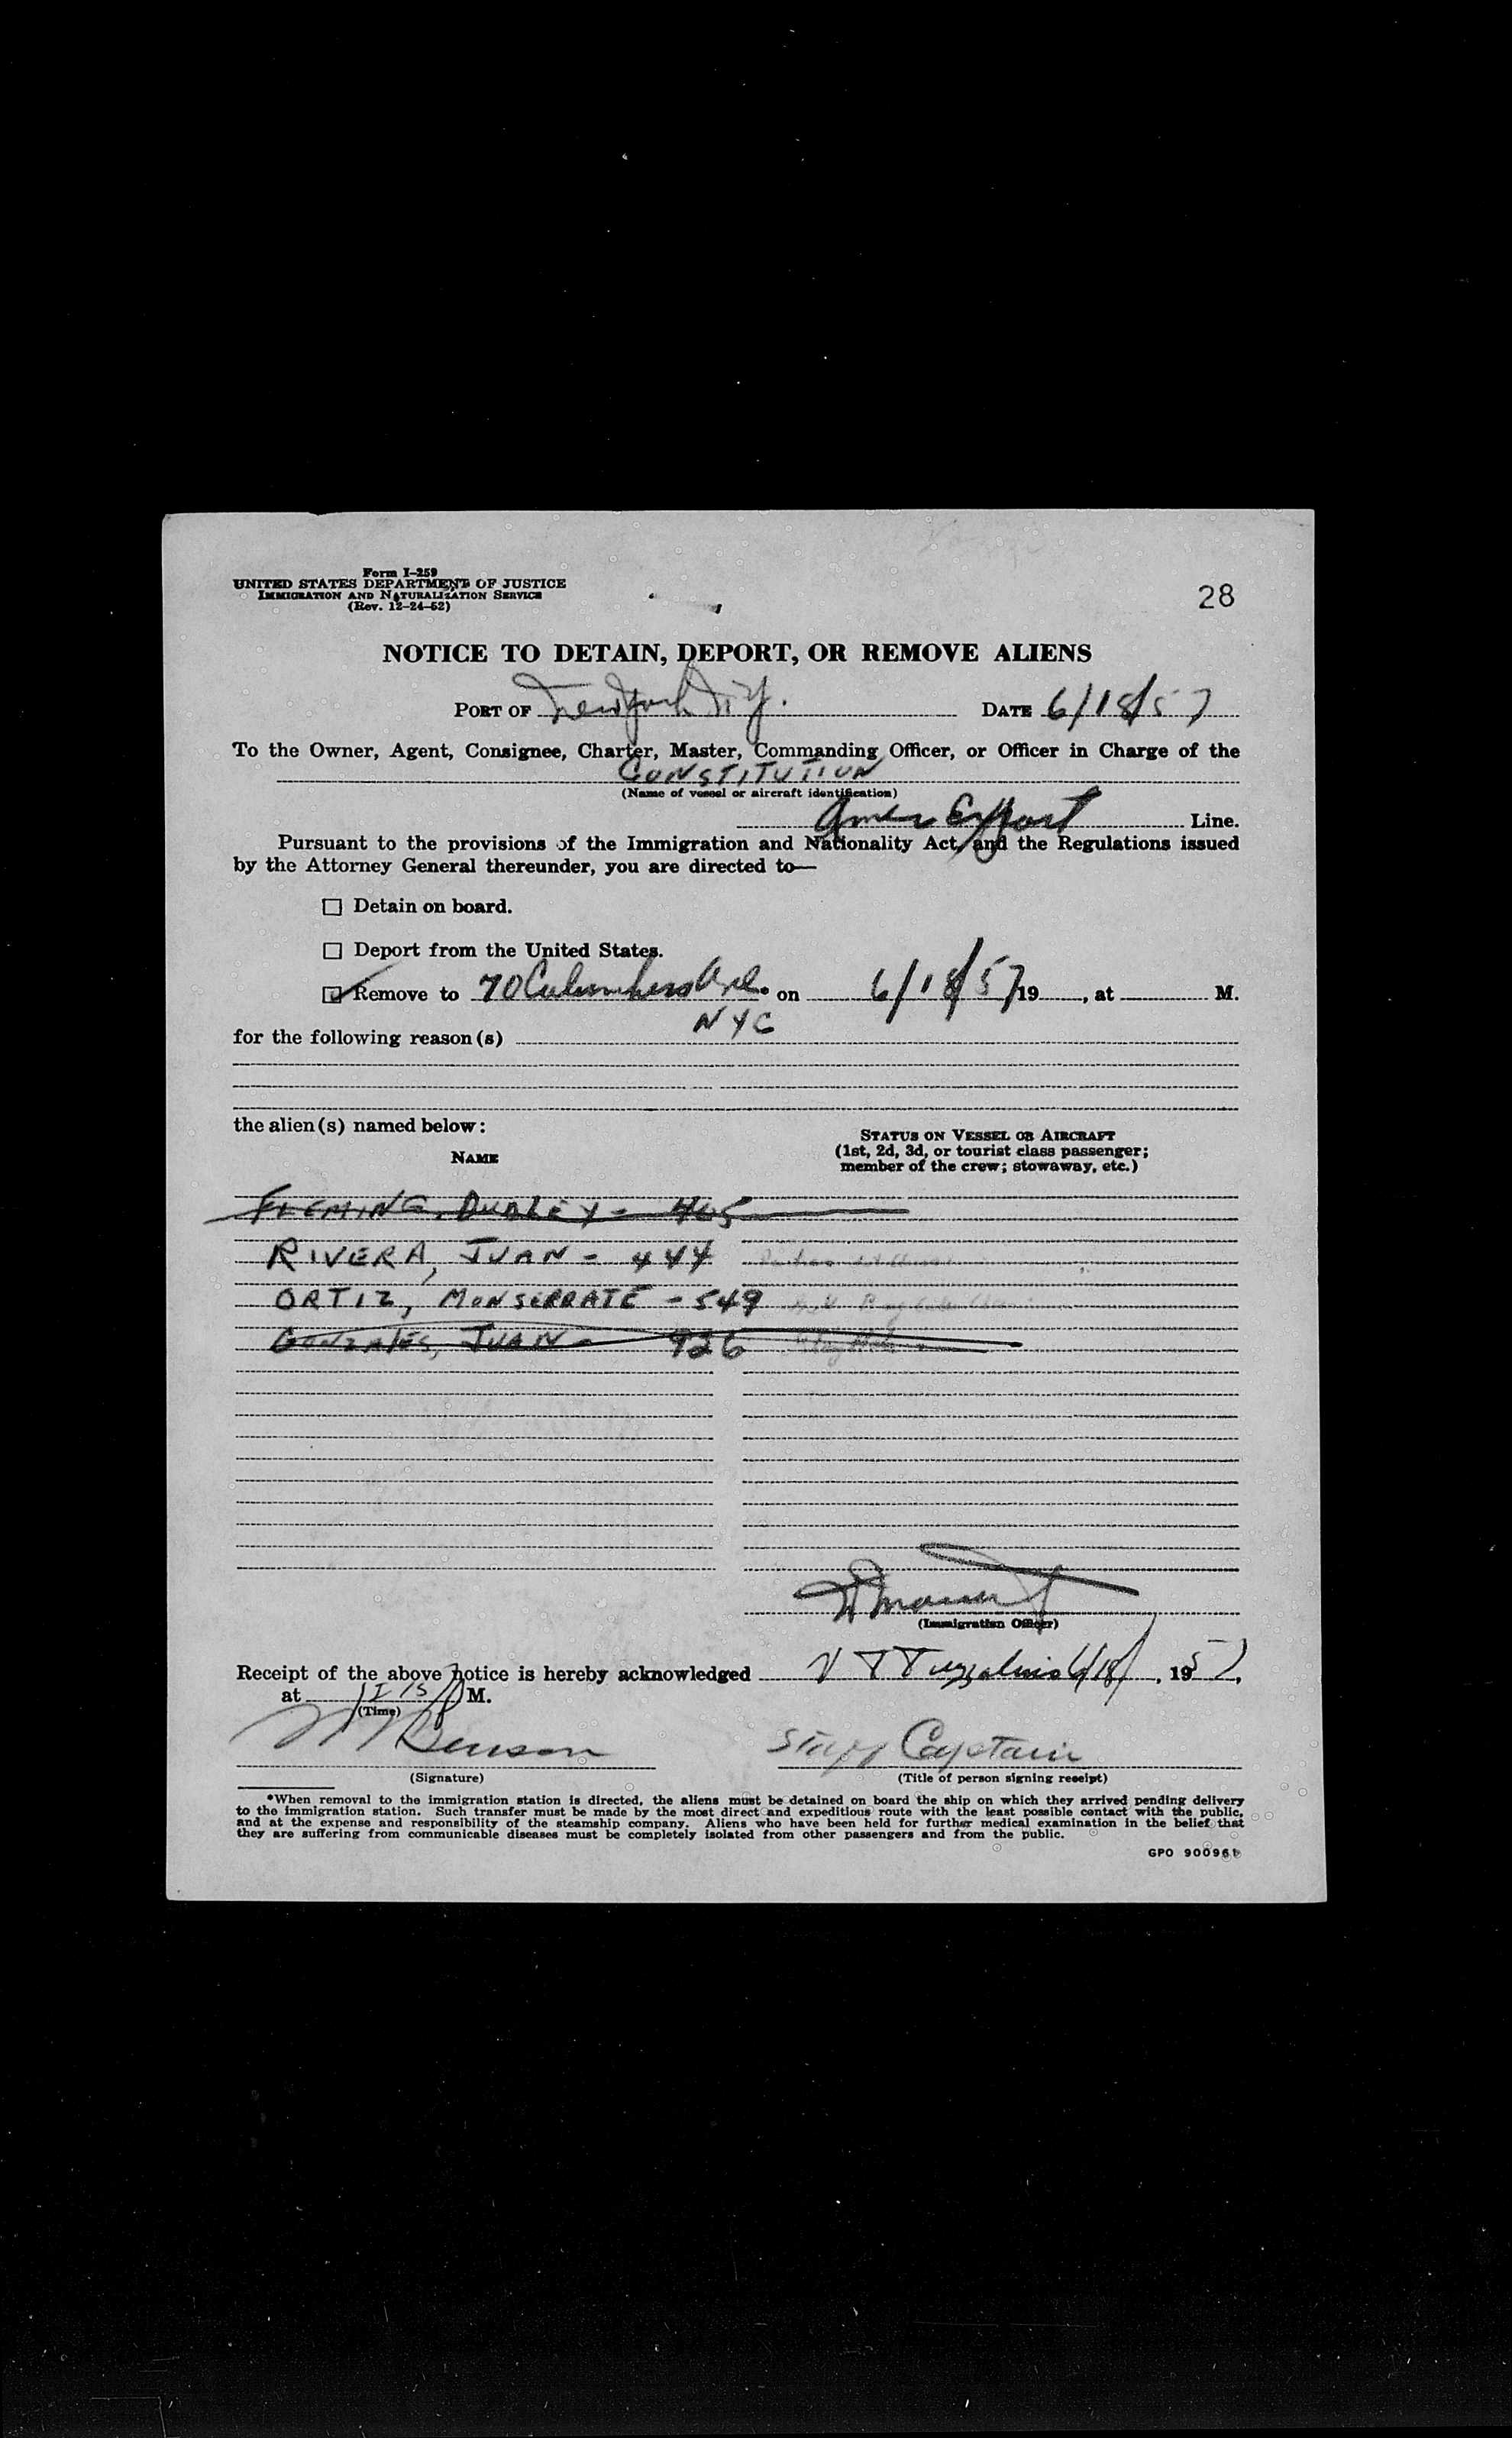 Form I-259
UNITED STATES DEPARTMENT OF JUSTICE
IMMIGRATION AND NATURALIZATION SERVICE
(Rev. 12-24-52)
28
NOTICE TO DETAIN, DEPORT, OR REMOVE ALIENS
PORT OF New York N.Y. DATE 6/18/57
To the Owner, Agent, Consignee, Charter, Master, Commanding Officer, or Officer in Charge of the
CONSTITUTION
(Name of vessel or aircraft identification)
Amer Export Line.
Pursuant to the provisions of the Immigration and Nationality Act, and the Regulations issued
by the Attorney General thereunder, you are directed to—
☐ Detain on board.
☐ Deport from the United States.
☑ Remove to 70 Columbus Ave.* on 6/18/57 19 , at M.
NYC
for the following reason(s)
the alien(s) named below:
NAME
STATUS ON VESSEL OR AIRCRAFT
(1st, 2d, 3d, or tourist class passenger;
member of the crew; stowaway, etc.)
FLEMING, DUDLEY - 405
RIVERA, JUAN - 444
ORTIZ, MONSERRATE - 549
GONZALES, JUAN - 926
(Immigration Officer)
Receipt of the above notice is hereby acknowledged 6/18/, 1957,
at M.
(Time)
Benson
Staff Captain
(Signature)
(Title of person signing receipt)
*When removal to the immigration station is directed, the aliens must be detained on board the ship on which they arrived pending delivery
to the immigration station. Such transfer must be made by the most direct and expeditious route with the least possible contact with the public,
and at the expense and responsibility of the steamship company. Aliens who have been held for further medical examination in the belief that
they are suffering from communicable diseases must be completely isolated from other passengers and from the public.
GPO 900961